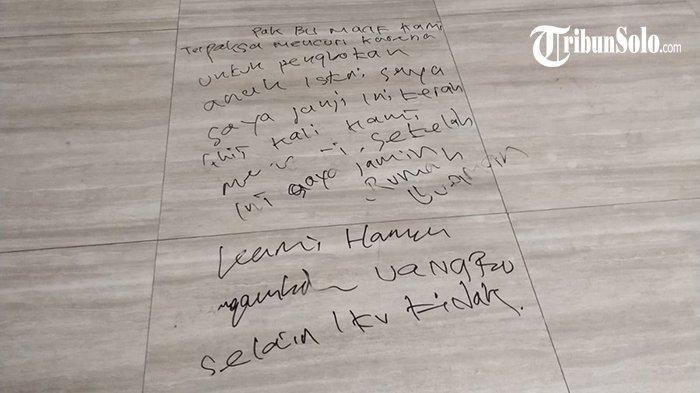 TribunSolo.com
Pak Bu Maaf Kami
Terpaksa mencuri karena
untuk pengobatan
anak Istri saya
saya janji Ini terah
khir kali kami
Setelah
Ini saya jamin
Rumah
Kami Hanya
uangRo
selain Itu tidak.